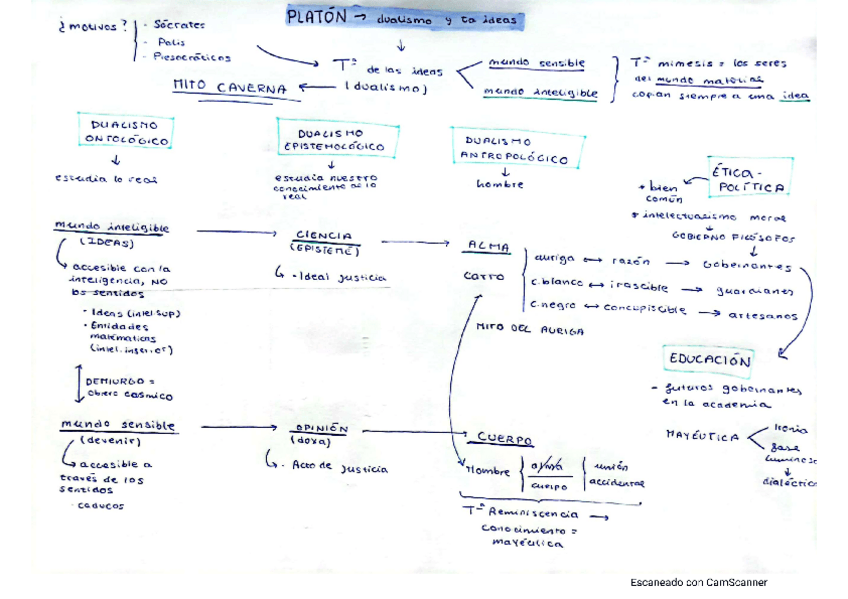 PLATÓN → dualismo y ta ideas
¿motivos?
- Sócrates
- Polis
- Presocráticos
Tª de las ideas
(dualismo)
mundo sensible
mundo inteligible
Tª mímesis = los seres
del mundo material
copian siempre a una idea
MITO CAVERNA
DUALISMO
ONTOLÓGICO
estudia lo real
DUALISMO
EPISTEMOLÓGICO
estudia nuestro
conocimiento de lo
real
DUALISMO
ANTROPOLÓGICO
hombre
ÉTICA-
POLÍTICA
* bien
común
* intelectualismo moral
GOBIERNO FILÓSOFOS
mundo inteligible
(IDEAS)
accesible con la
inteligencia, NO
los sentidos
- Ideas (intel.sup)
- Entidades
matemáticas
(intel.inferior)
DEMIURGO =
obrero cósmico
mundo sensible
(devenir)
accesible a
través de los
sentidos
- caducos
CIENCIA
(EPISTEME)
- Ideal justicia
OPINIÓN
(doxa)
- Acto de justicia
ALMA
carro
auriga ↔ razón → Gobernantes
c.blanco ↔ irascible → guardianes
c.negro ↔ concupiscible → artesanos
MITO DEL AURIGA
CUERPO
Hombre
alma
cuerpo
unión
accidental
Tª Reminiscencia →
conocimiento =
mayéutica
EDUCACIÓN
- futuros gobernantes
en la academia
MAYÉUTICA
Ironía
fase
luminosa
dialéctica
Escaneado con CamScanner